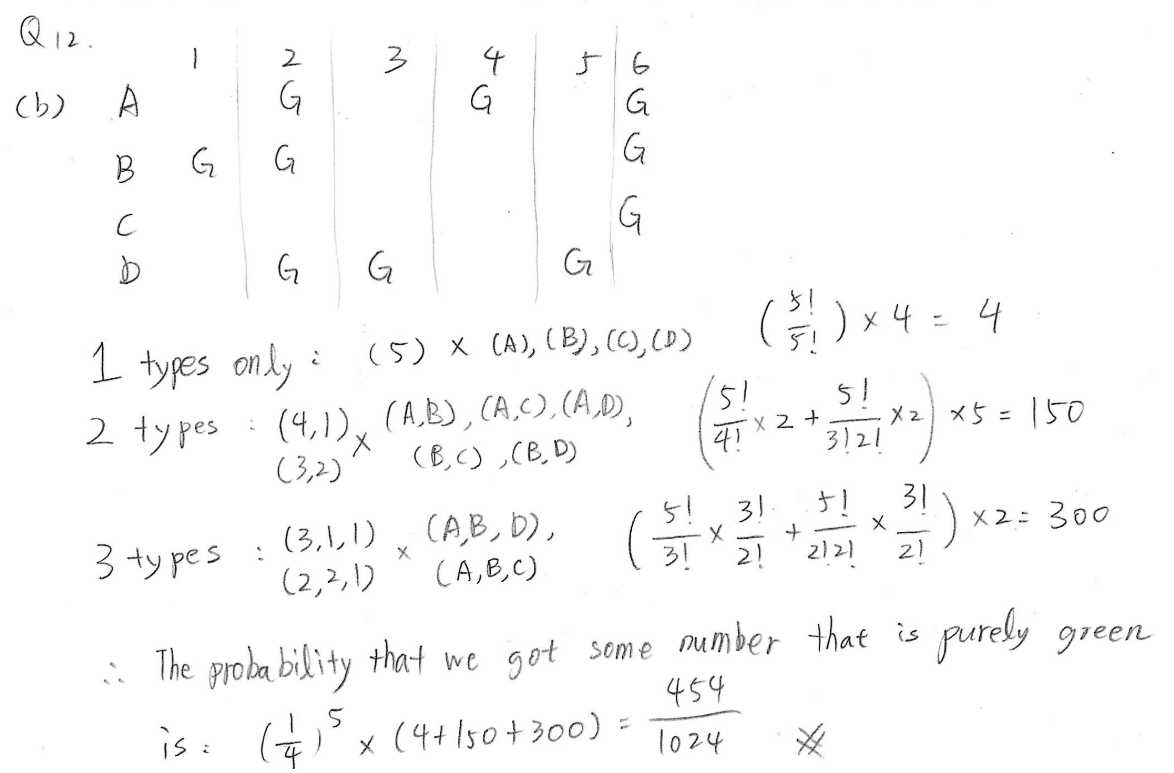 Q12.
1 2 3 4 5 6
(b) A G G G
B G G G
C G
D G G G
1 types only : (5) × (A), (B), (C), (D) (5!/5!) × 4 = 4
2 types : (4,1) (3,2) × (A,B), (A,C), (A,D), (B,C), (B,D) (5!/4! × 2 + 5!/3!2! × 2) × 5 = 150
3 types : (3,1,1) (2,2,1) × (A,B,D), (A,B,C) (5!/3! × 3!/2! + 5!/2!2! × 3!/2!) × 2 = 300
∴ The probability that we got some number that is purely green
is : (1/4)^5 × (4+150+300) = 454/1024